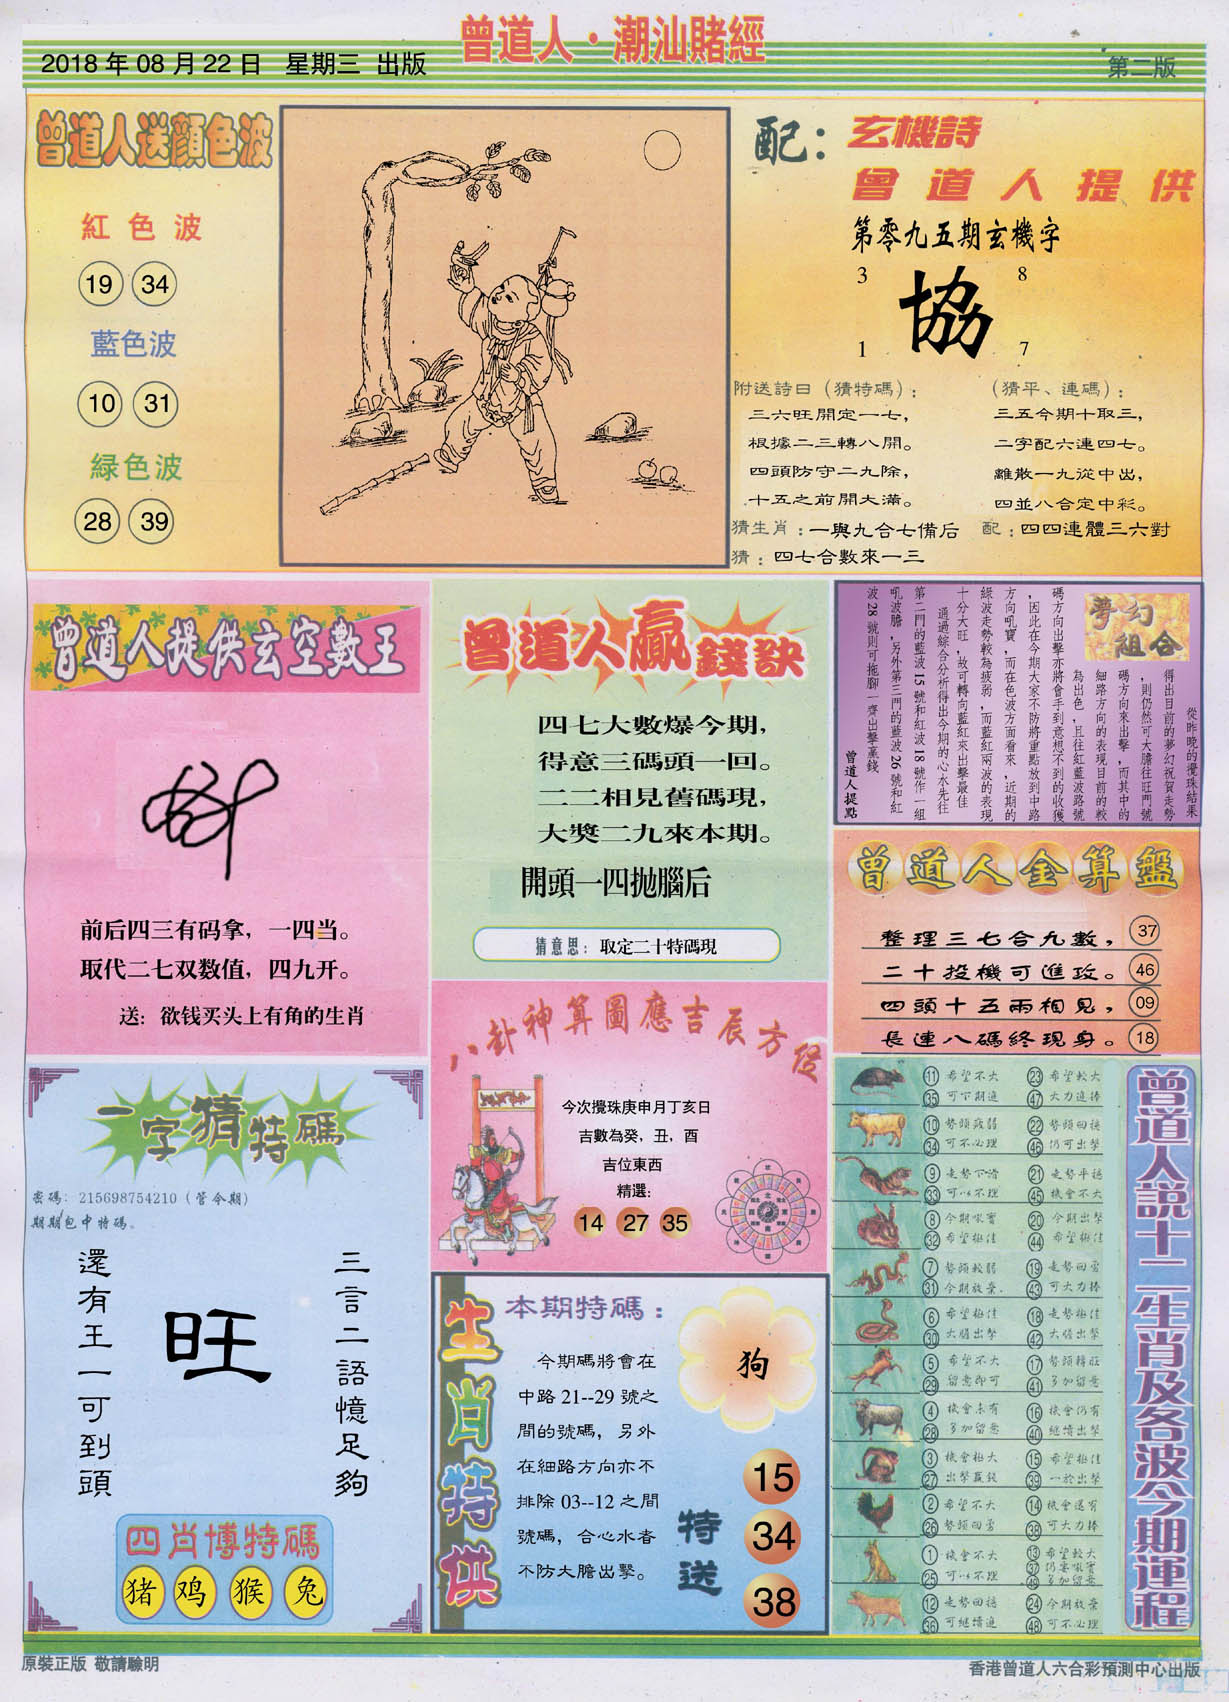 曾道人·潮汕賭經
2018年08月22日 星期三 出版
第二版
曾道人送顏色波
紅色波
19 34
藍色波
10 31
綠色波
28 39
配：玄機詩
曾道人提供
第零九五期玄機字
3 8
協
1 7
附送詩曰（猜特碼）：
三六旺開定一七，
根據二三轉八開。
四頭防守二九除，
十五之前開大滿。
（猜平、連碼）：
三五今期十取三，
二字配六連四七。
離散一九從中出，
四並八合定中彩。
猜生肖：一與九合七備后
配：四四連體三六對
猜：四七合數來一三
曾道人提供玄空數王
前后四三有码拿，一四当。
取代二七双数值，四九开。
送：欲钱买头上有角的生肖
曾道人贏錢訣
四七大數爆今期，
得意三碼頭一回。
二二相見舊碼現，
大獎二九來本期。
開頭一四拋腦后
猜意思：取定二十特碼現
夢幻
組合
從昨晚的攪珠結果
得出目前的夢幻祝賀走勢
，則仍然可大膽往旺門號
碼方向來出擊，而其中的
細路方向的表現目前的較
為出色，且往紅藍波路號
碼方向出擊亦將會手到意想不到的收獲
，因此在今期大家不防將重點放到中路
方向吼寶，而在色波方面看來，近期的
綠波走勢較為疲弱，而藍紅兩波的表現
十分大旺，故可轉向藍紅來出擊最佳
通過綜合分析得出今期的心水先往
第二門的藍波15號和紅波18號作一組
吼波膽，另外第三門的藍波26號和紅
波28號則可拖腳一齊出擊贏錢
曾道人提點
曾道人金算盤
整理三七合九數， 37
二十投機可進攻。 46
四頭十五兩相見， 09
長連八碼終現身。 18
八卦神算圖應吉辰方位
今次攪珠庚申月丁亥日
吉數為癸，丑，酉
吉位東西
精選：
14 27 35
一字猜特碼
密碼：215698754210（管令期）
期期包中特碼。
三言二語憶足夠
旺
還有王一可到頭
四肖博特碼
猪 鸡 猴 兔
生肖特供
本期特碼：
今期碼將會在
中路21--29號之
間的號碼，另外
在細路方向亦不
排除03--12之間
號碼，合心水者
不防大膽出擊。
狗
特送
15
34
38
曾道人説十二生肖及各波今期運程
11 希望不大 23 希望較大
35 可下期進 47 大力進捧
10 勢頭疲弱 22 勢頭回穩
34 可不必理 46 仍可出擊
9 走勢下滑 21 走勢平穩
33 可以不理 45 機會不大
8 今期吼寶 20 今期出擊
32 希望極佳 44 希望極佳
7 勢頭較弱 19 走勢回勇
31 今期放棄 43 可大力捧
6 希望極佳 18 走勢極佳
30 大膽出擊 42 大膽出擊
5 希望不大 17 勢頭轉旺
29 留意即可 41 多加留意
4 機會未有 16 機會仍有
28 多加留意 40 繼續出擊
3 機會極大 15 希望極佳
27 出擊贏錢 39 一於出擊
2 希望不大 14 機會還有
26 勢頭回勇 38 可大力捧
1 機會不大 13 希望較大
25 可以不理 37 仍要吼實
49 多加留意
12 走勢回穩 24 今期放棄
36 可繼續進 48 可不必理
原裝正版 敬請驗明
香港曾道人六合彩預測中心出版